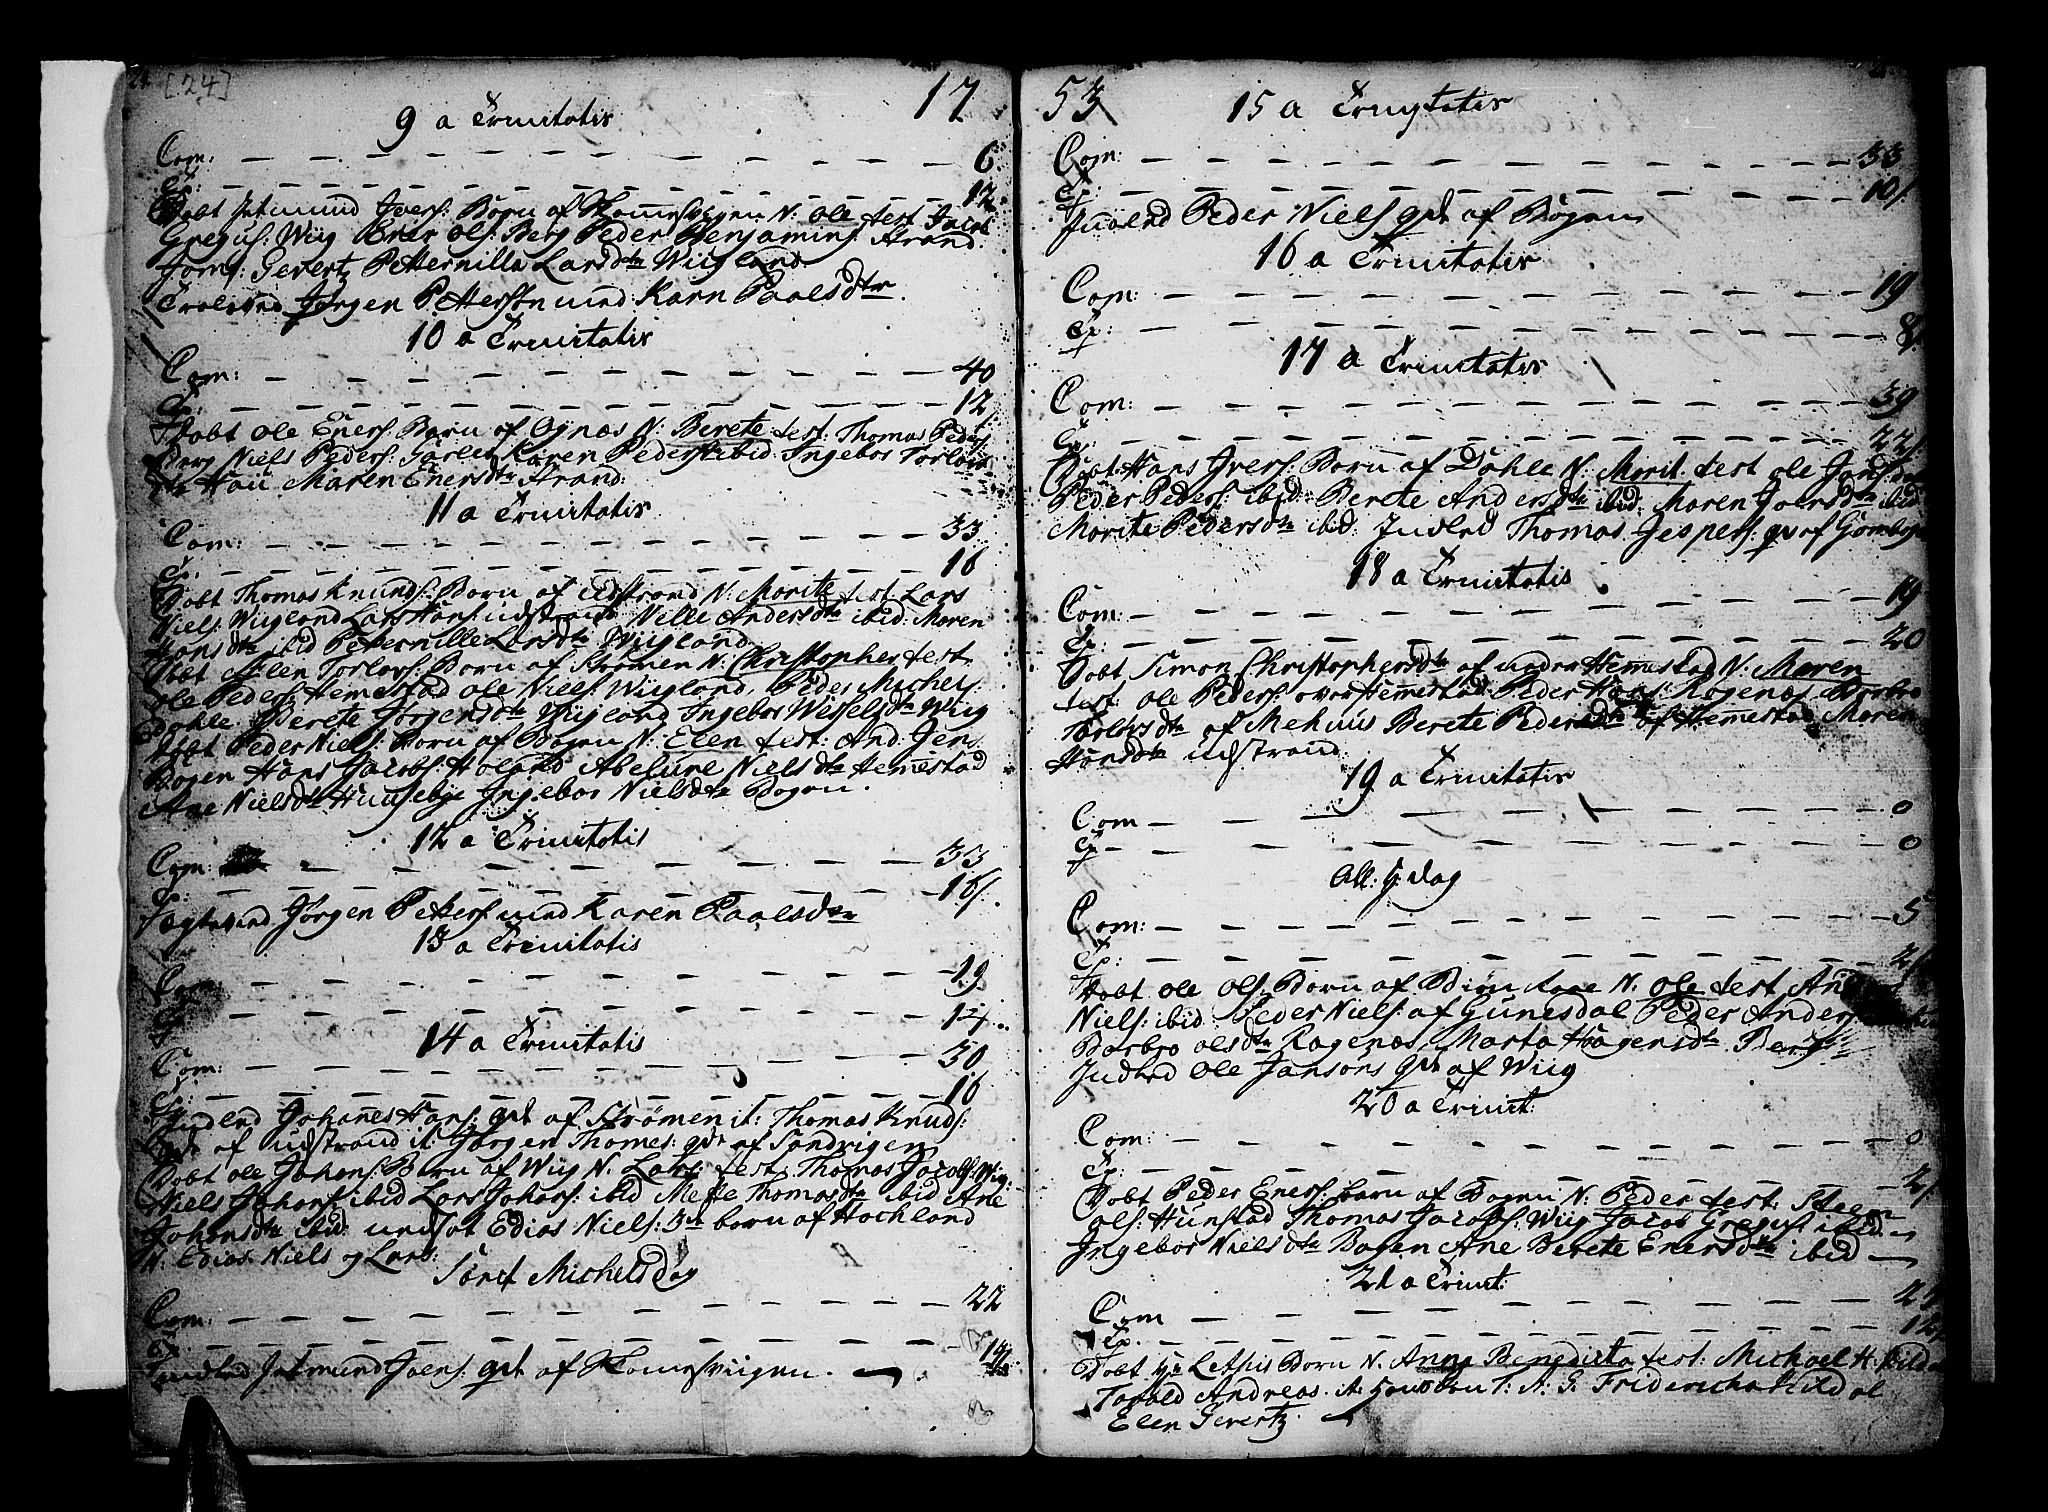 [24]
17
9 a Trinitatis
Com: 6
Ex: 12
Døbt Jetmund Ivers: Børn af N: Ole test Jacob
Gregus: Wiig Ener Ols: Berg Peder Benjamins: Strand
Jomf: Gevertz Petternilla Larsdtr Wiigland
Troloved Jørgen Petterson med Karn Paalsdtr.
10 a Trinitatis
Com: 40
Ex: 12
Døbt Ole Eners: Barn af Ognæs N: Berete test: Thomas Peders:
Berg Niels Peders: Karen Pedersd ibid: Ingebor Torlovs
dtr Hau Maren Enersdtr Strand:
11 a Trinitatis
Com: 33
Ex: 16
Døbt Thomas Knuds: Børn af Udstrand N: Morite test Lars
Niels: Wiigland Lars Hans: udstrand Nille Andersdtr ibid: Maren
Hansdtr ibid Peternille Larsdtr Wiigland
Døbt Elen Torlovs: Børn af Strømen N: Christopher test
Ole Peders: Hemestad Ole Niels: Wiigland, Peder Michels:
Dahle Berete Jørgensdtr Wiigland Ingebor Wesselsdtr Wiig
Døbt Peder Niels: Børn af Bogen N: Elen test: And: Jens:
Bogen Hans Jacobs: Holand Abelune Nielsdtr Hemestad
Ane Nielsdtr Huusebye Ingebor Nielsdtr Bogen.
12 a Trinitatis
Com: 33
Ex: 16/.
Ægteved Jørgen Petters: med Karen Paalsdtr
13 a Trinitatis
Com: 19
Ex:
14 a Trinitatis
Com: 30
Ex: 16
Indled Johanes Hans: qvd af Strømen it: Thomas Knuds:
qvd af udstrand it Jørgen Thomes: qvd af Sandvigen
Døbt Ole Johans: Børn af Wiig N. Lars test: Thomas Jacobs: Wiig:
Niels Johans: ibid Lars Johans: ibid Mette Thomasdtr ibid Ane
Johansdtr ibid: Edias Niels: 3de børn af Hochland
N. Edias Niels og Lars:
Sanct Michelsdag
Com: 22
Ex:
Indled Jetmund Ivers: qvd af
53
15 a Trinitatis
Com: 33
Ex: 10/.
Indled Peder Niels qvd af Bogen
16 a Trinitatis
Com: 19
Ex: 8
17 a Trinitatis
Com: 39
Ex: 22/.
Døbt Hans Ivers: Børn af Dahle N: Morit test Ole
Peder Peders: ibid: Berete Andersdtr ibid: Maren Iversdtr ibid
Morite Pedersdtr ibid: Indled Thomas Jespers: qvd af
18 a Trinitatis
Com: 19
Ex: 20
Døbt Simon Christophersdtr af under Hemestad N: Maren
test: Ole Peders: over Hemestad Peder Hans: Rogenæs Barbro
Torlovsdtr af Mehuus Berete Pedersdtr af Hemestad Maren
Hansdtr udstrand:
19 a Trinitatis
Com 0
Ex 0
All: H: dag
Com: 5
Ex: 2
Døbt Ole Ols: Børn af N. Ole test
Niels: ibid: Peder Niels: af Gunesdal Peder Anders:
Barbro Olsdtr Ragenæs, Marta Haagensdtr Berg
Indled Ole Jansøns qvd af Wiig
20 a Trinit:
Com: 0
Ex: 2/.
Døbt Peder Eners: barn af Bogen N: Peder test: Steen
Ols: Hunstad Thomas Jacobs: Wiig Jacob Gregus: ibid:
Ingebor Nielsdtr Bogen Ane Berete Enersdtr ibid
21 a Trinit:
Com
Ex.
Døbt Børn N. Anne Benedicta test: Michael H:
Andreas Friderricha Hildal
Elen Gevertz.